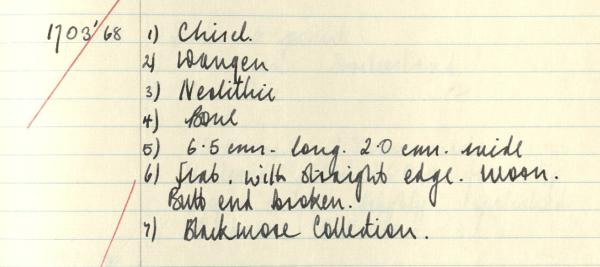 1703'68 1) Chisel.
2) Wangen
3) Neolithic
4) Bone
5) 6.5 cm. long. 2.0 cm. wide
6) Flat. with straight edge. worn.
Butt end broken.
7) Blackmore Collection.